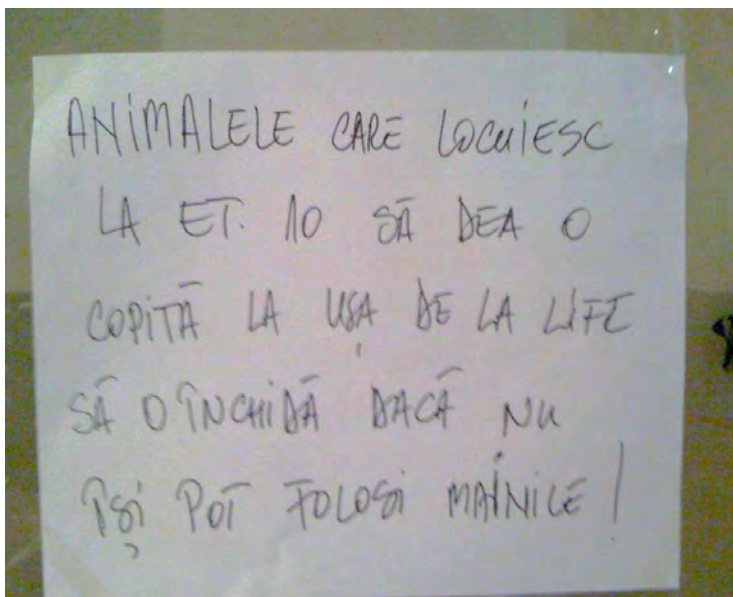 ANIMALELE CARE LOCUIESC
LA ET. 10 SĂ DEA O
COPITĂ LA UȘA DE LA LIFT
SĂ O ÎNCHIDĂ DACĂ NU
ÎȘI POT FOLOSI MAÎNILE!